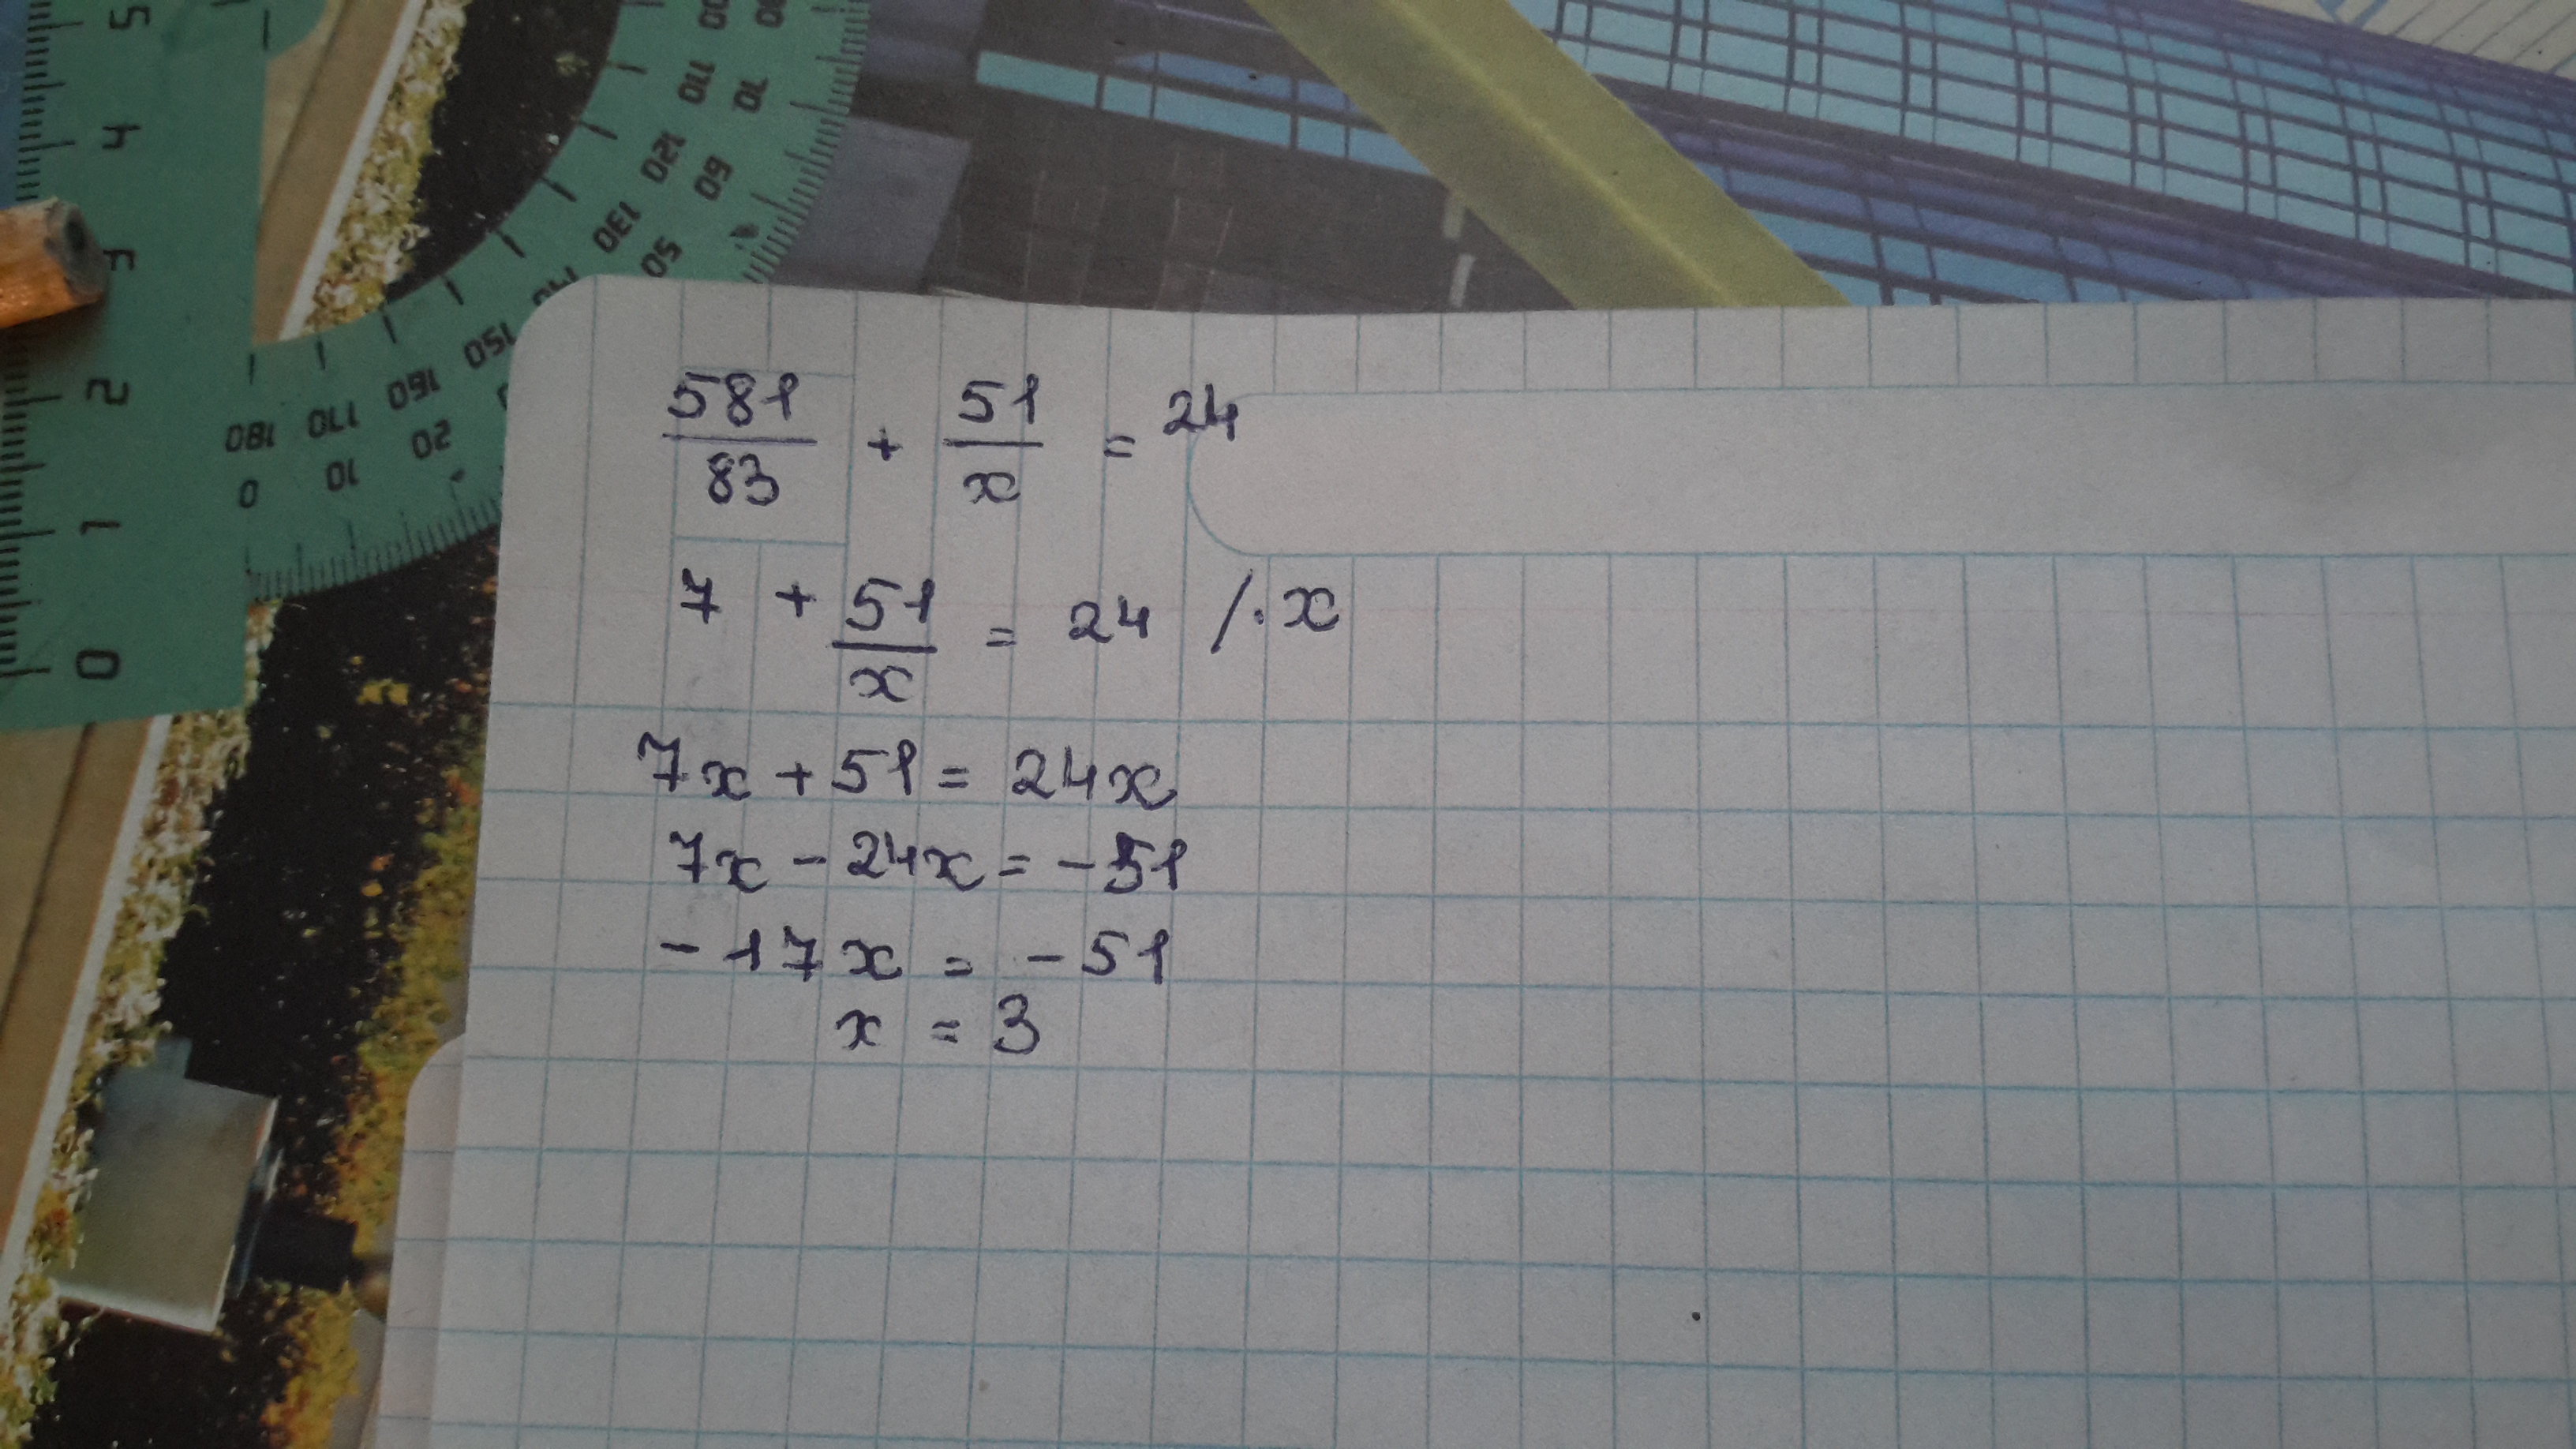 581/83 + 51/x = 24
7 + 51/x = 24 /·x
7x + 51 = 24x
7x - 24x = -51
-17x = -51
x = 3
5
4
3
2
1
0
110
120
130
150
160
170
180
70
60
50
20
10
0